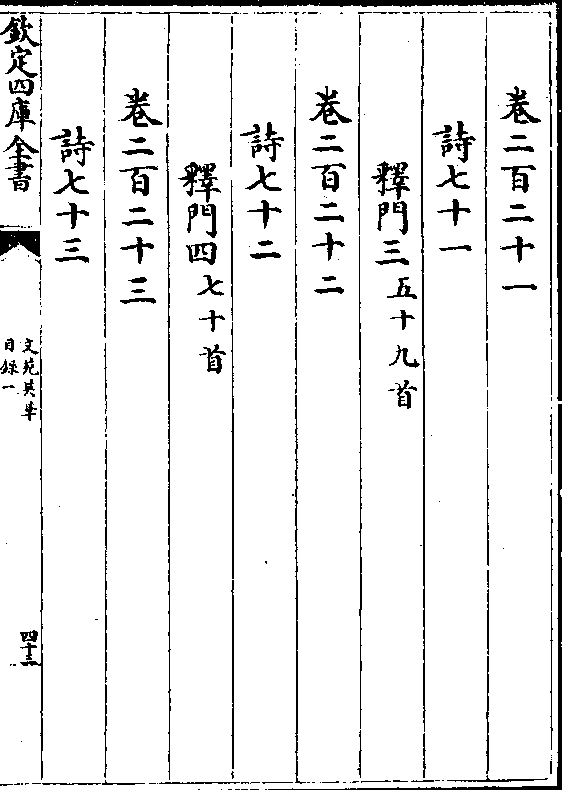 卷二百二十一
詩七十一
釋門三五十九首
卷二百二十二
詩七十二
釋門四七十首
卷二百二十三
詩七十三
欽定四庫全書
文苑英華
目録一
四十三